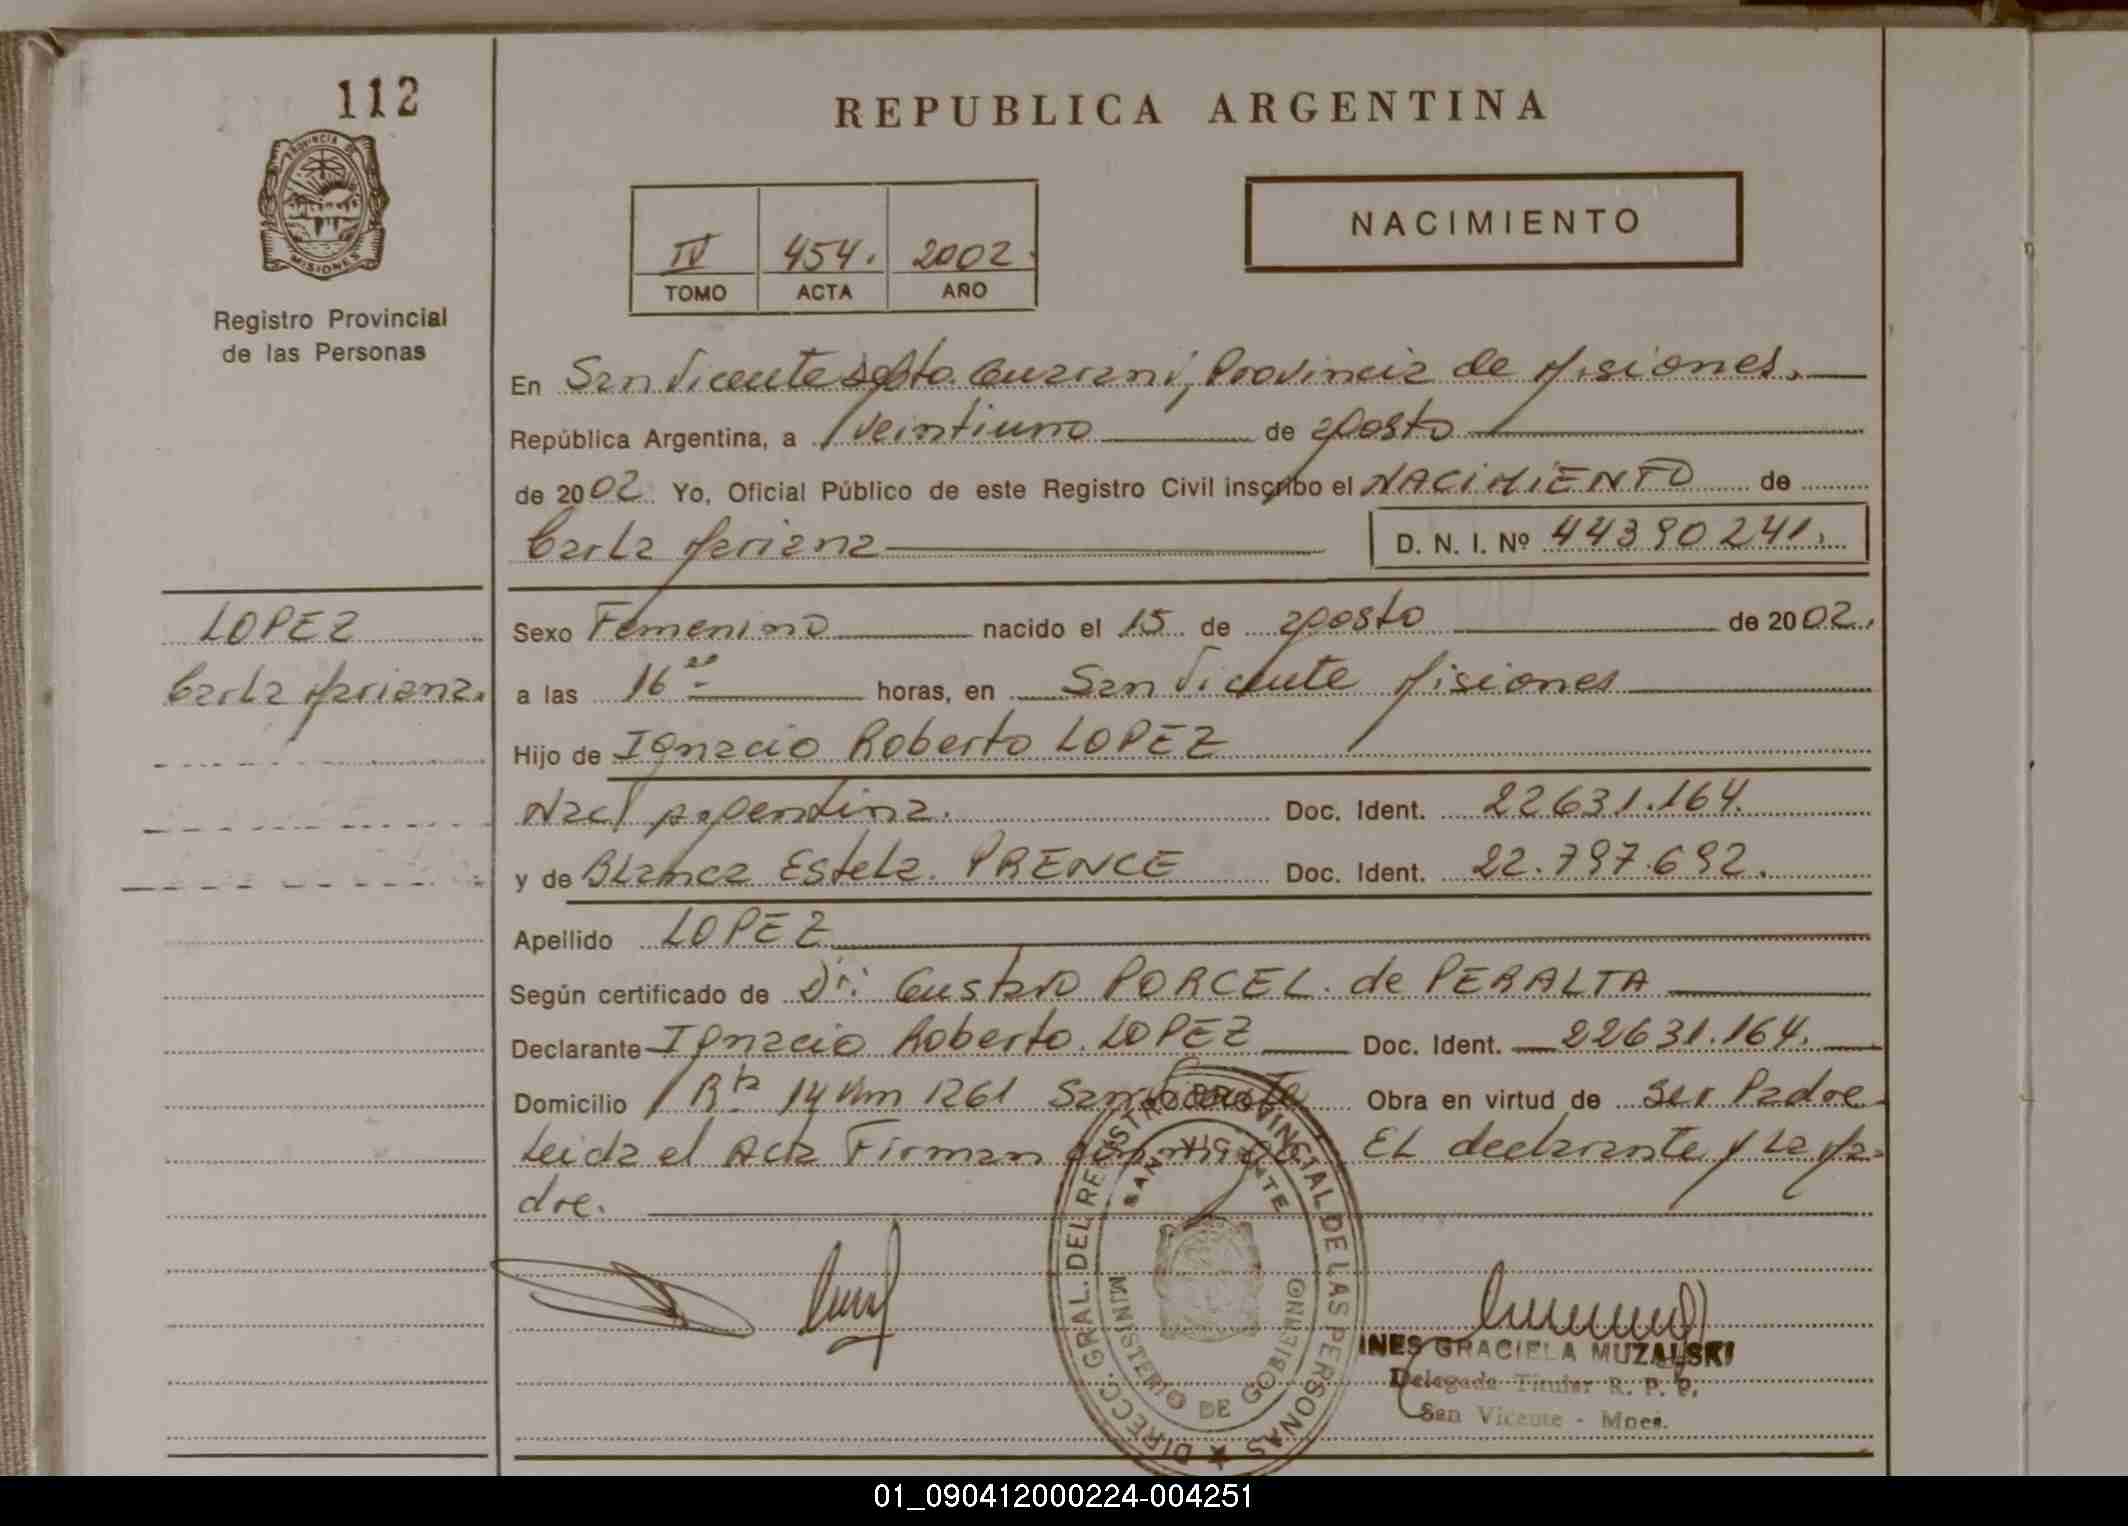 112
PROVINCIA DE
MISIONES
Registro Provincial
de las Personas
REPUBLICA ARGENTINA
NACIMIENTO
IV 454. 2002.
TOMO ACTA AÑO
En San Vicente Dpto. Guarani, Provincia de Misiones.
República Argentina, a veintiuno de agosto
de 2002 Yo, Oficial Público de este Registro Civil inscribo el NACIMIENTO de
Carla Mariana D. N. I. Nº 44390241.
LOPEZ
Carla Mariana.
Sexo Femenino nacido el 15 de agosto de 2002.
a las 16 horas, en San Vicente Misiones
Hijo de Ignacio Roberto LOPEZ
Nacl Argentina. Doc. Ident. 22631.164.
y de Blanca Estela. PRENCE Doc. Ident. 22.797.692.
Apellido LOPEZ
Según certificado de Dr. Gustavo PORCEL. de PERALTA
Declarante Ignacio Roberto. LOPEZ Doc. Ident. 22631.164.
Domicilio Rta 14 Km 1261 San Vicente Obra en virtud de ser Padre
Leida el Acta Firman conmigo. EL declarante y la Ma-
dre.
DIRECC. GRAL. DEL REGISTRO PROVINCIAL DE LAS PERSONAS
SAN VICENTE
MINISTERIO DE GOBIERNO
INES GRACIELA MUZALSKI
Delegada Titular R. P. P.
San Vicente - Mnes.
01_090412000224-004251